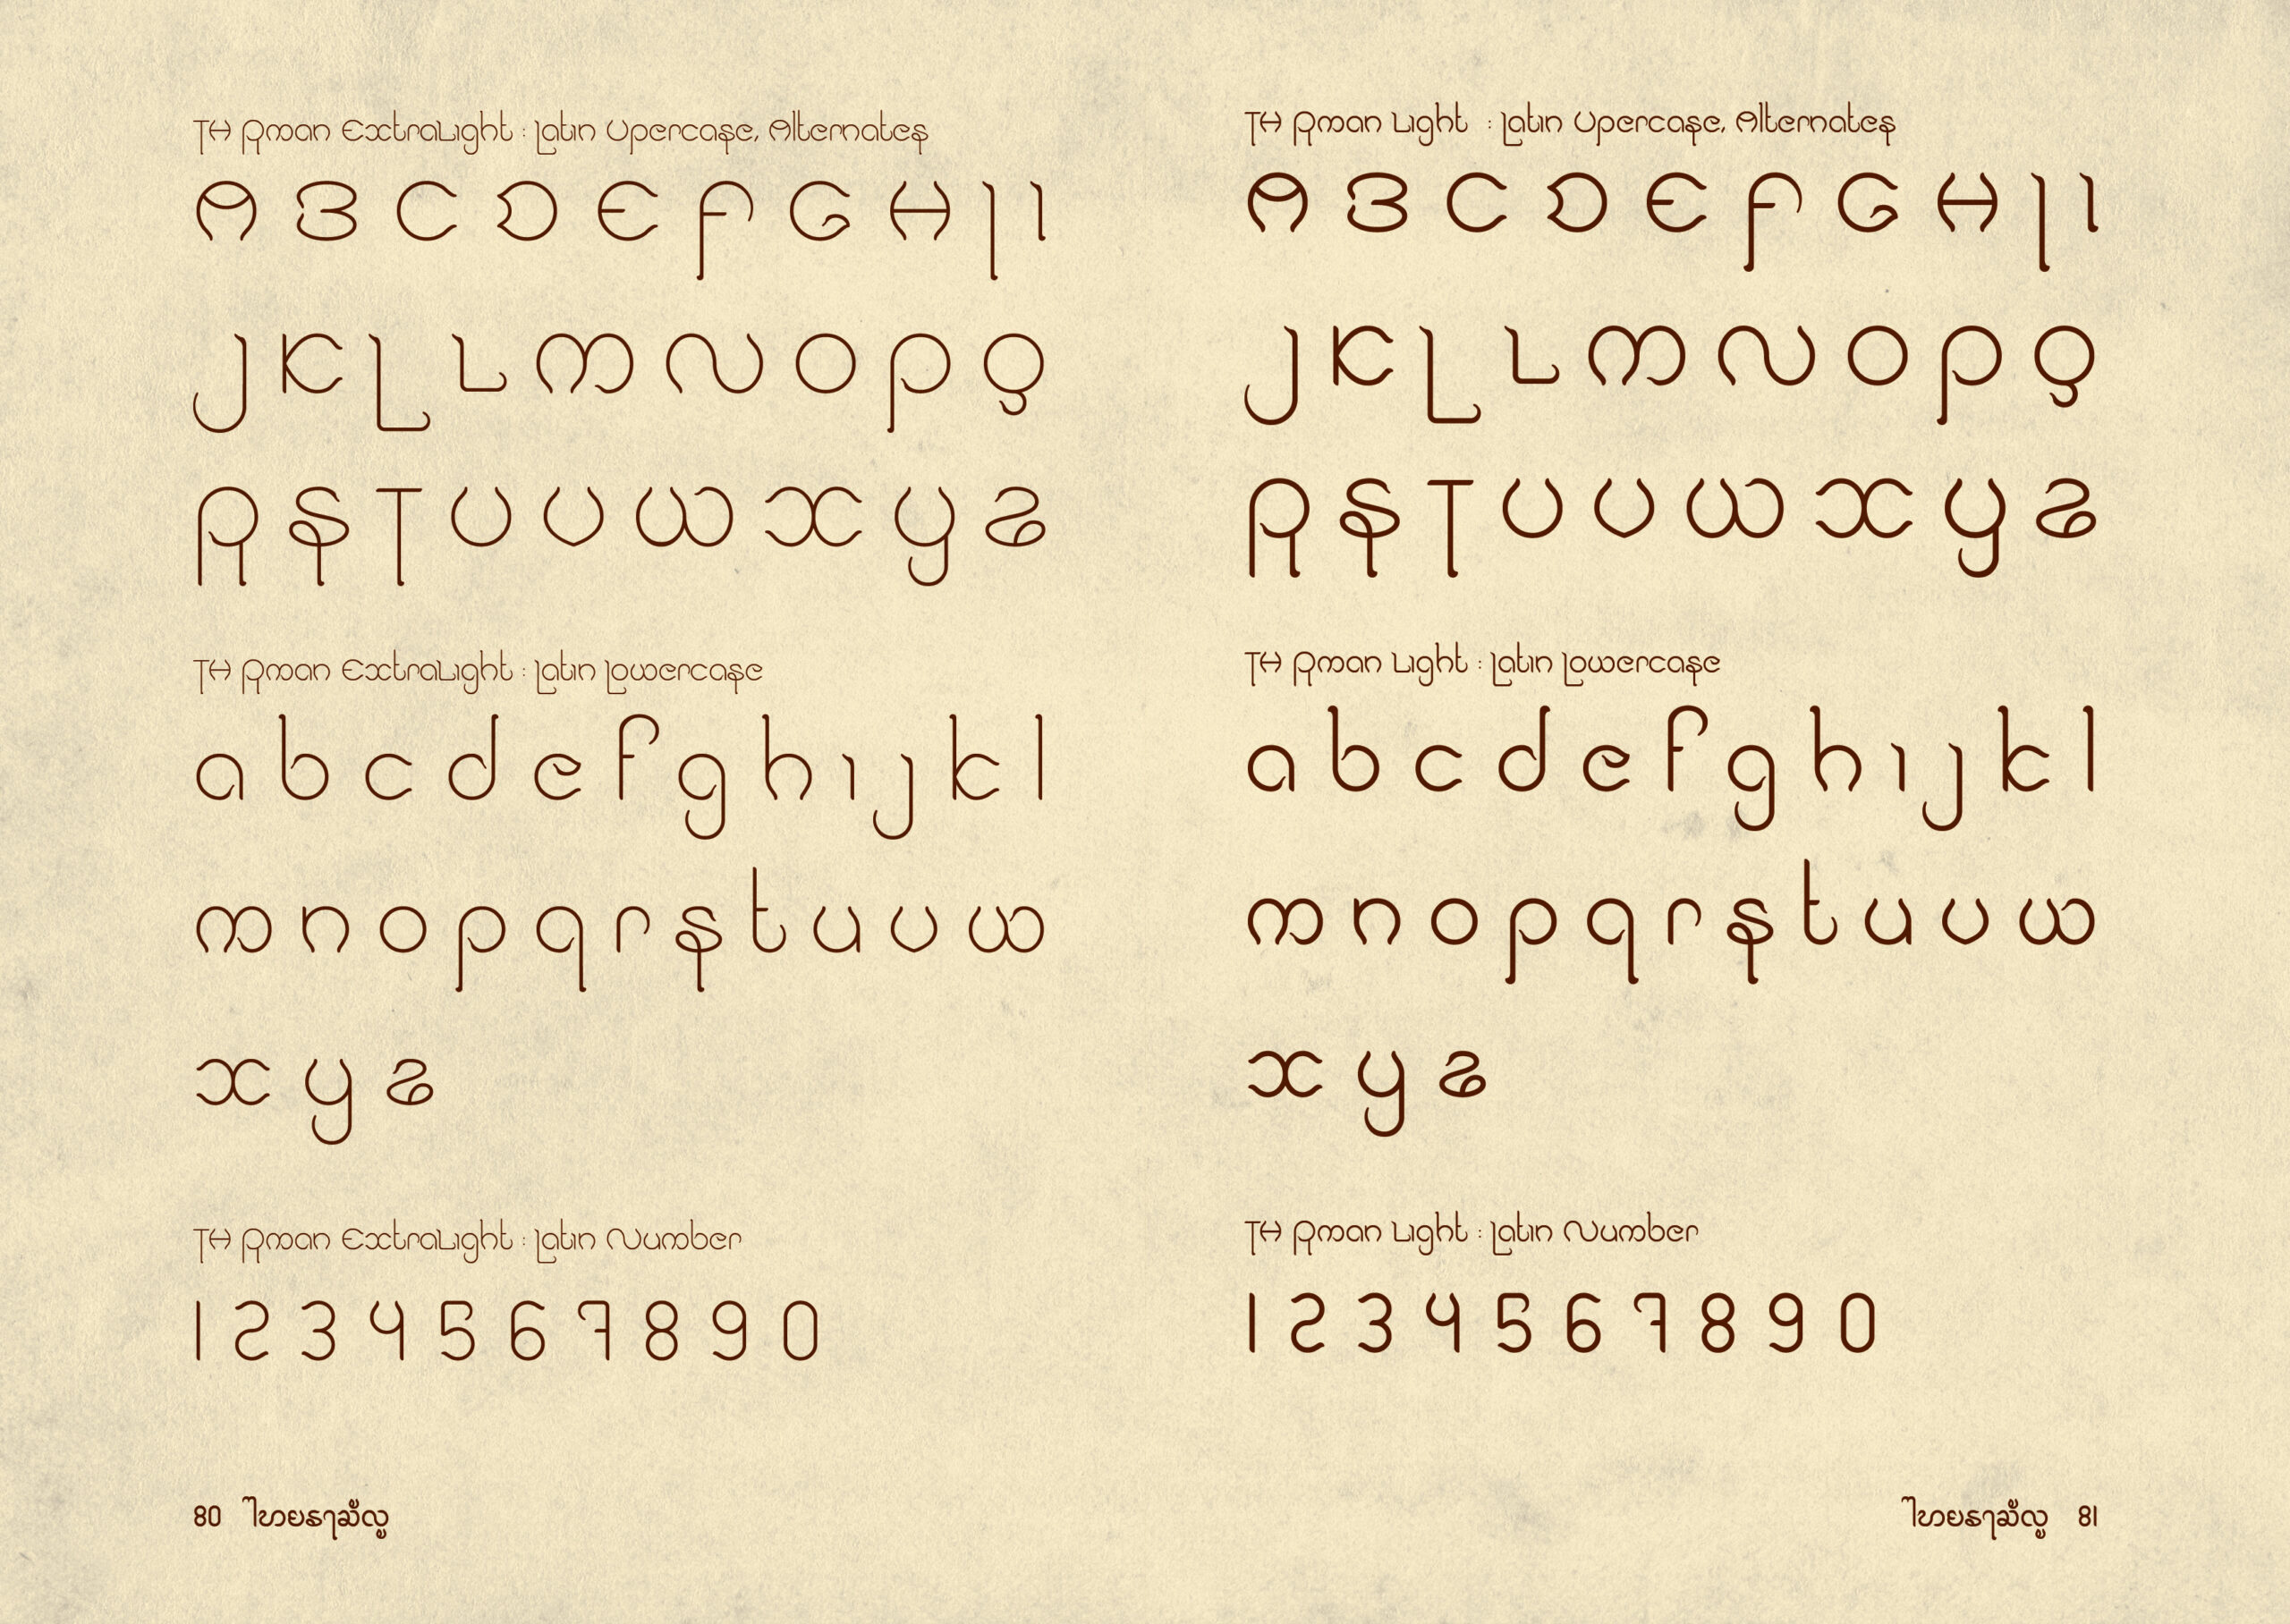 TH Rman ExtraLight : Latin Upercase, Alternates
A B C D E F G H I I
J K L L M N O P Q
R S T U V W X Y Z
TH Rman ExtraLight : Latin Lowercase
a b c d e f g h i j k l
m n o p q r s t u v w
x y z
TH Rman ExtraLight : Latin Number
1 2 3 4 5 6 7 8 9 0
80
TH Rman Light : Latin Upercase, Alternates
A B C D E F G H I I
J K L L M N O P Q
R S T U V W X Y Z
TH Rman Light : Latin Lowercase
a b c d e f g h i j k l
m n o p q r s t u v w
x y z
TH Rman Light : Latin Number
1 2 3 4 5 6 7 8 9 0
81